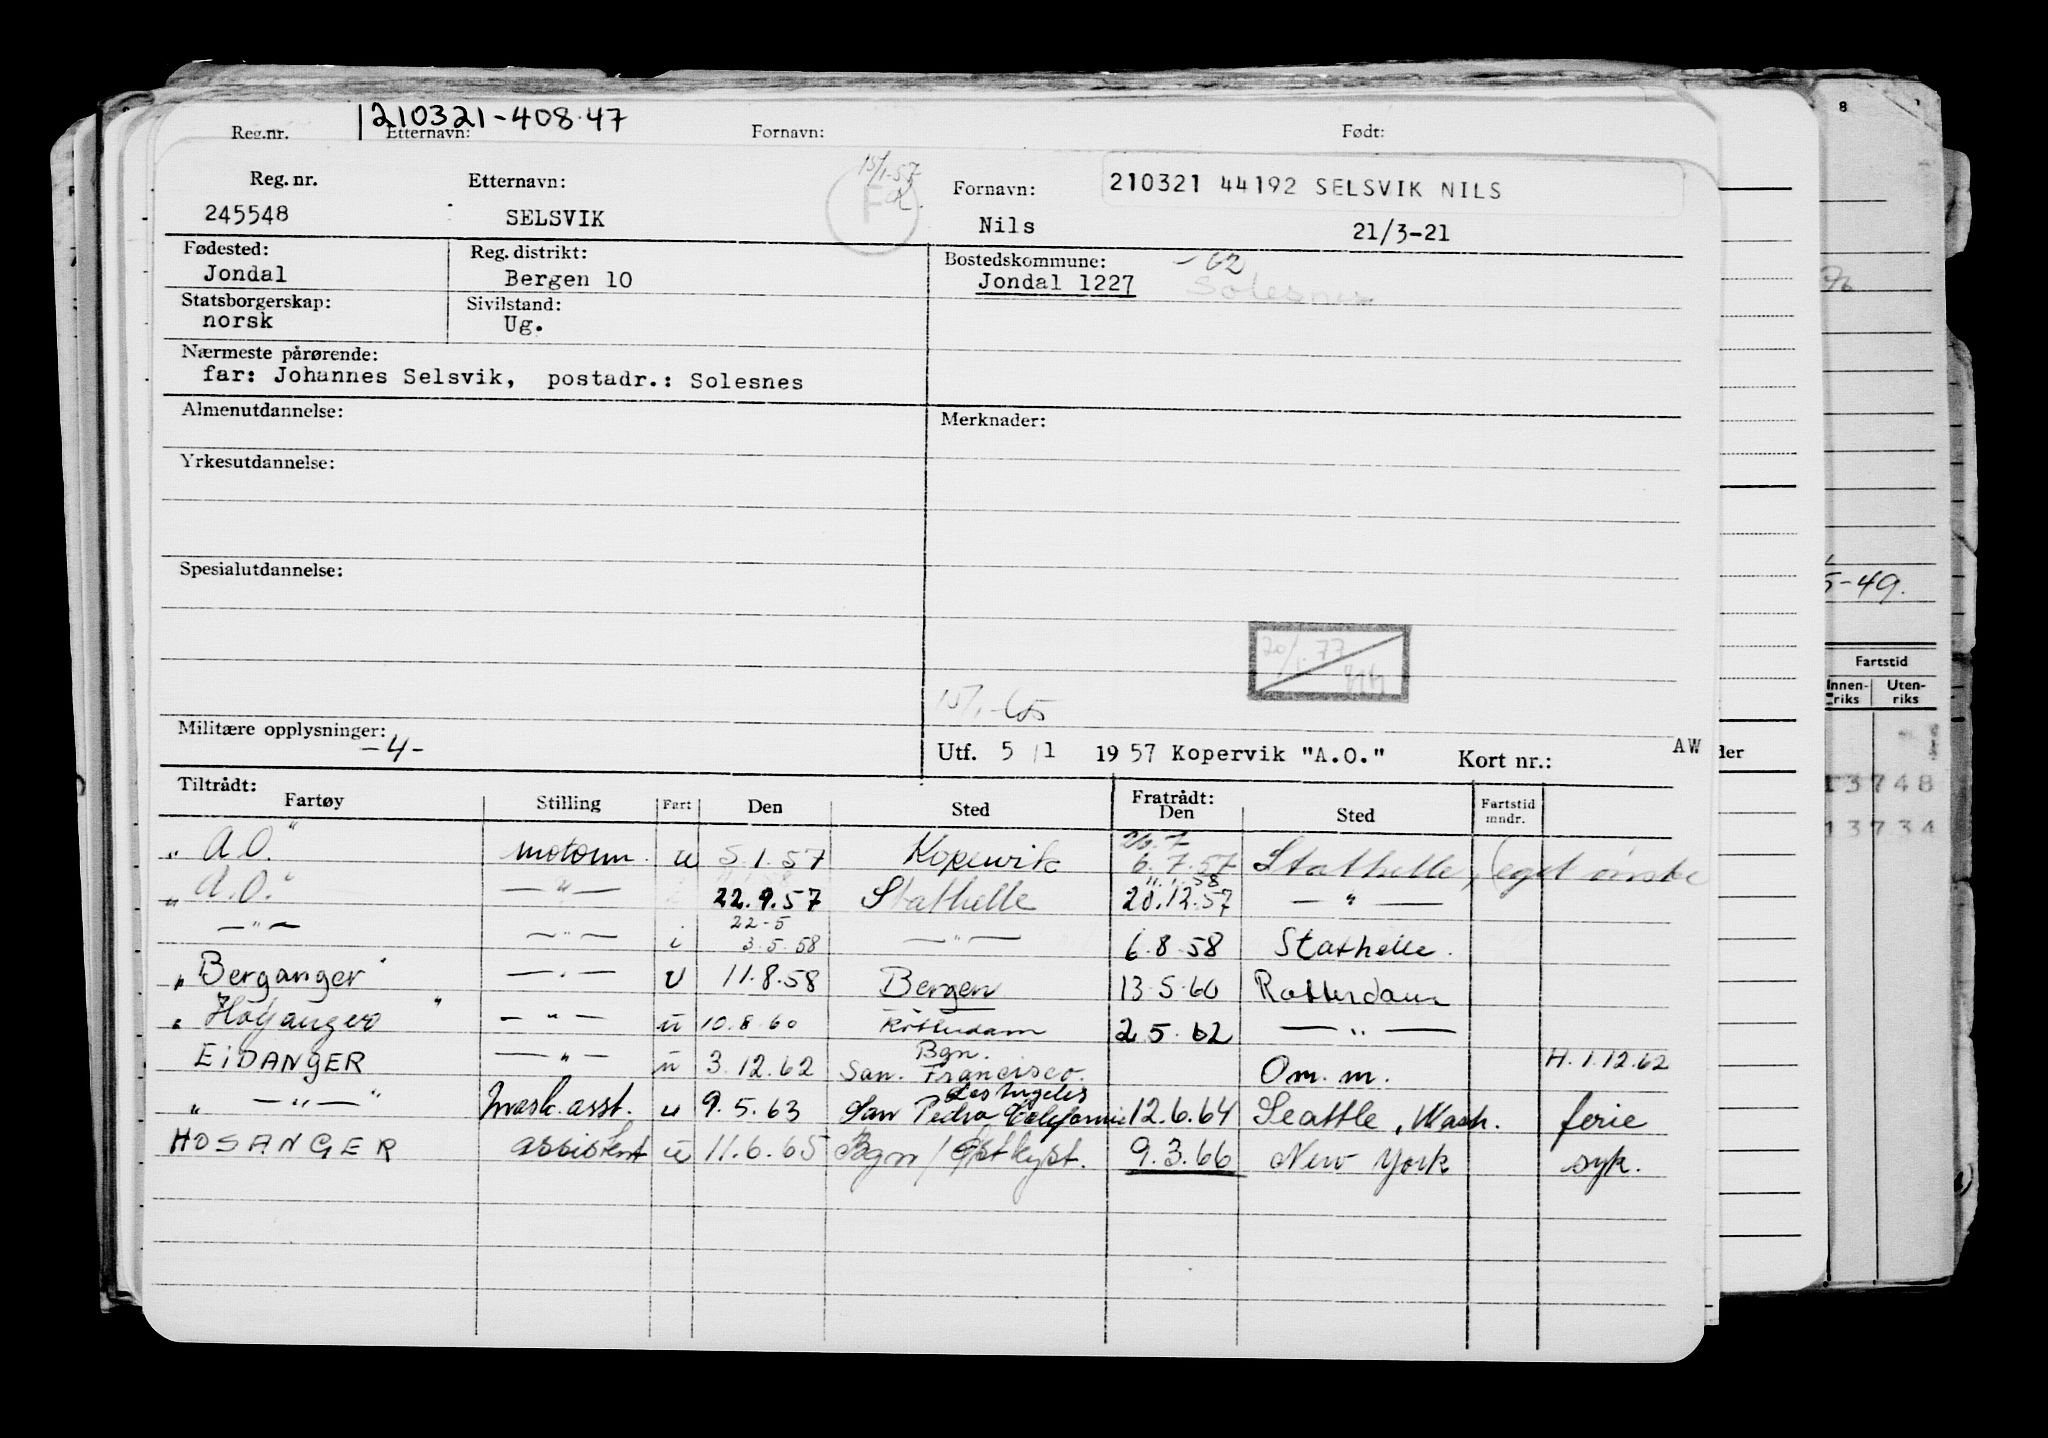 210321-408.47
Reg.nr. Etternavn: Fornavn: Født:
Reg. nr. Etternavn: 15/1-57 Fornavn: 210321 44192 SELSVIK NILS
245548 SELSVIK Nils 21/3-21
Fødested: Reg. distrikt: Bostedskommune: -62
Jondal Bergen 10 Jondal 1227 Solesnes
Statsborgerskap: Sivilstand:
norsk Ug.
Nærmeste pårørende:
far: Johannes Selsvik, postadr.: Solesnes
Almenutdannelse: Merknader:
Yrkesutdannelse:
Spesialutdannelse:
20/1.77
Militære opplysninger: -4-
Utf. 5/1 1957 Kopervik "A.O." Kort nr.: AW
Tiltrådt: Fratrådt:
Fartøy Stilling Fart Den Sted Den Sted Fartstid mndr.
"A.O." motorm. u 5.1.57 Kopervik 6.7.57 Stathelle, eget ønske
"A.O." —"— 22.9.57 Stathelle 20.12.57 —"—
11.1.58
—"— —"— i 3.5.58 —"— 6.8.58 Stathelle.
22-5
"Berganger" —"— u 11.8.58 Bergen 13.5.60 Rotterdam
"Høyanger" —"— u 10.8.60 Rotterdam 2.5.62 —"—
EIDANGER —"— u 3.12.62 Bgn. San. Francisco. Om. m. H. 1.12.62
" —"— " Mask. asst. u 9.5.63 San Pedro Los Angeles California 12.6.64 Seattle, Wash. ferie
HOSANGER assistent u 11.6.65 Bgn / Østkyst. 9.3.66 New York syk.
8
5-49.
Fartstid
Innen-riks Uten-riks
13748
13734